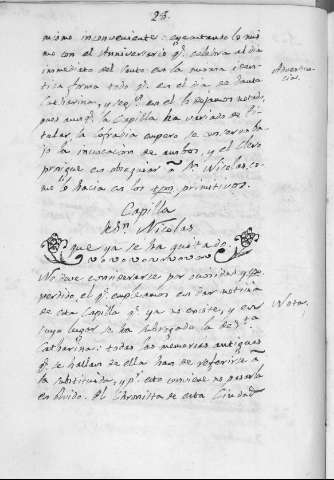 23.
mismo inconveniente: executante lo mis
mo con el Anniversario q.e celebra al dia
inmediato del Santo en la misma iden-
tica forma todo q.e en el dia de Santa
Catharina, y seg.n en el lo dexamos notado,
pues aunq.e la Capilla ha variado de ti-
tular, la Cofradia empero se conserva ba-
jo la invocacion de ambos, y el Clero
prosigue en obsequiar à S.n Nicolas, co-
mo lo hacia en los años primitivos.
Adverten-
cias.
Capilla
de S.n Nicolas
que ya se ha quitado
No deve considerarse por ocioso, y
perdido el q.e empleamos en dar noticia
de esta Capilla q.e ya no existe, y en
cuyo lugar se ha subrogado la de S.ta
Catharina: todas las memorias antiguas
q.e se hallan de ella han de referirse à
la substituida, y p.r esto conviene no pasarla
en olvido. El Chronista de esta Ciudad
Notas,